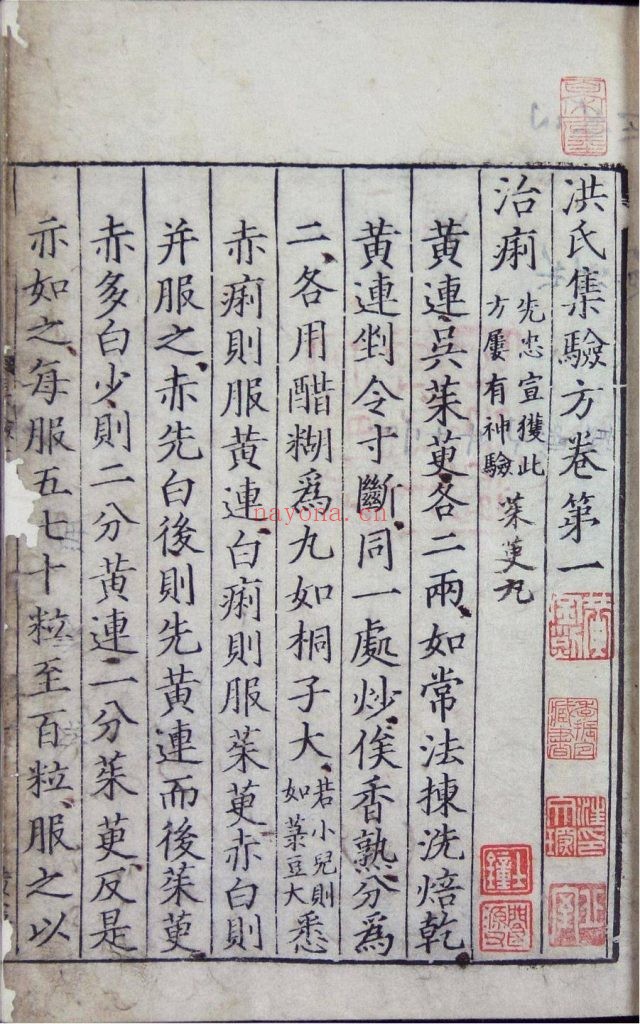 洪氏集驗方卷第一
治痢 先忠宣獲此方屢有神驗 茱萸丸
黄連吳茱萸各二兩如常法揀洗焙乾
黄連剉令寸斷同一處炒俟香熟分爲
二各用醋糊爲丸如桐子大若小兒則如菉豆大悉
赤痢則服黄連白痢則服茱萸赤白則
并服之赤先白後則先黄連而後茱萸
赤多白少則二分黄連一分茱萸反是
亦如之每服五七十粒至百粒服之以
nayona.cn